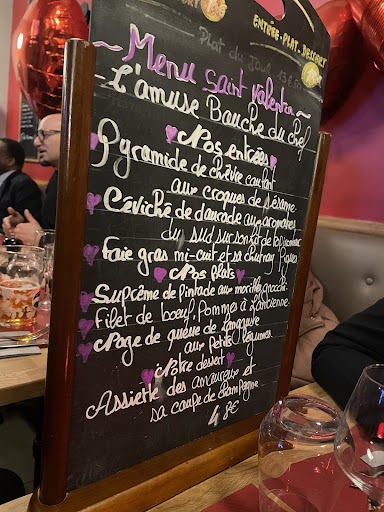 ENTRÉE-PLAT-DESSERT
Plat du jour 13€
Menu Saint Valentin
L'amuse Bouche du chef
Nos entrées
Pyramide de chèvre coulant
aux croques de sésame
Céviché de daurade aux aromates
du sud sur son lit de
Foie gras mi-cuit et sa chutney Figues
Nos plats
Suprême de pintade aux morilles, gnocchi
Filet de boeuf, Pommes à l'ancienne
Nage de queue de Langouste
aux petits légumes
Notre dessert
Assiette des amoureux et
sa coupe de champagne
48€